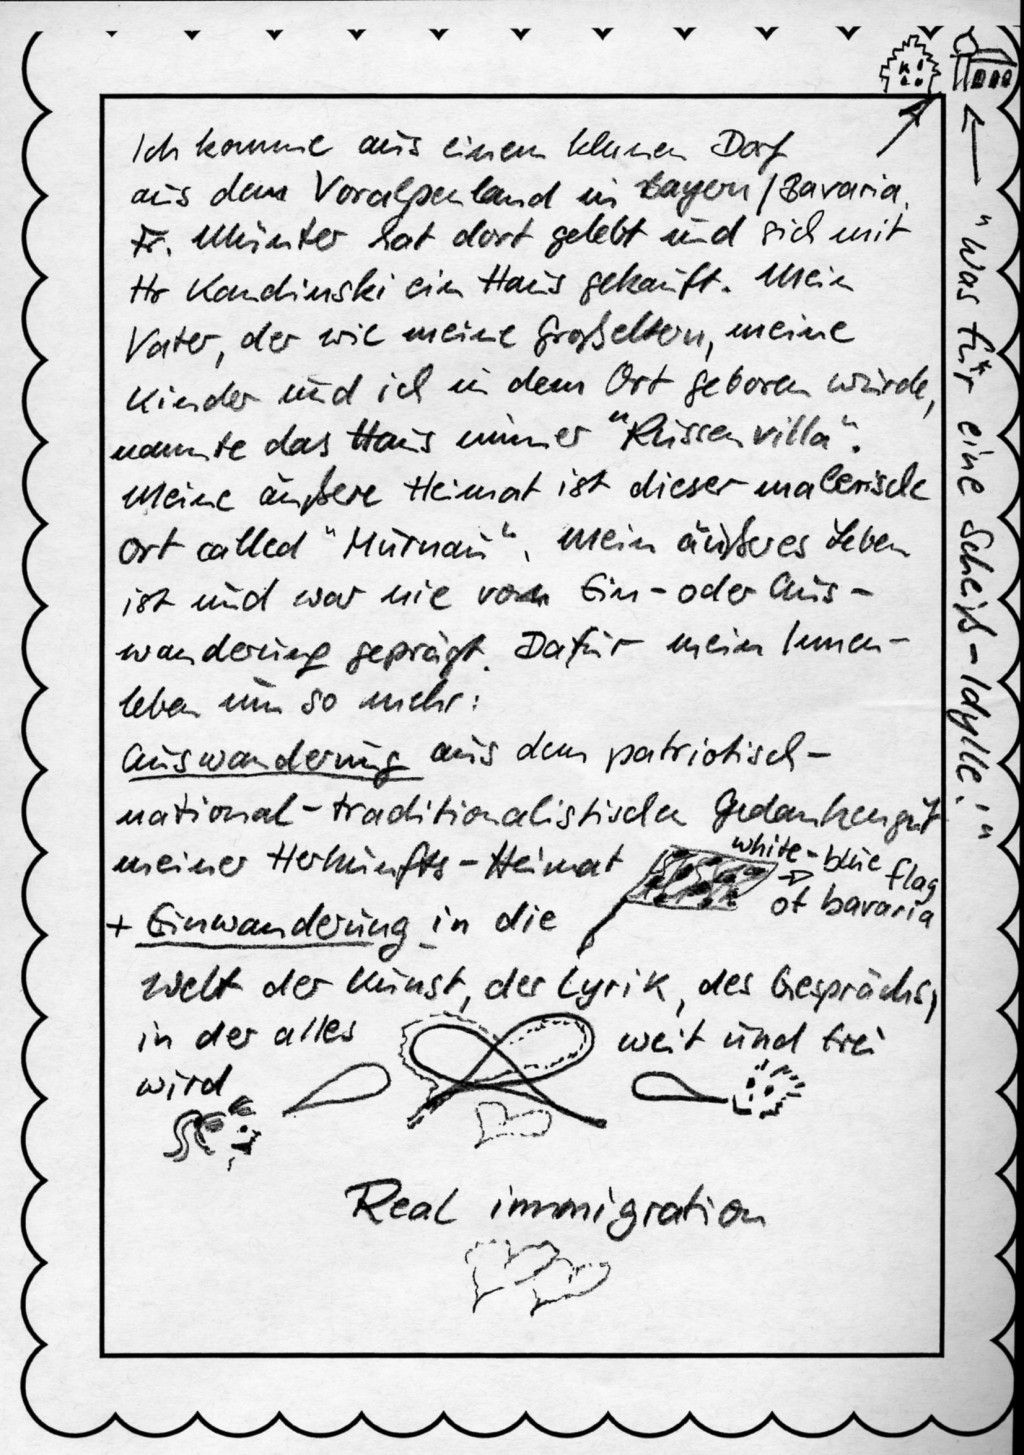 Ich komme aus einem kleinen Dorf
aus dem Voralpenland in Bayern/Bavaria.
Fr. Münter hat dort gelebt und sich mit
Hr Kandinski ein Haus gekauft. Mein
Vater, der wie meine Großeltern, meine
Kinder und ich in dem Ort geboren wurde,
nannte das Haus immer "Russenvilla".
Meine äußere Heimat ist dieser malerische
Ort called "Murnau". Mein äußeres Leben
ist und war nie von Ein- oder Aus-
wanderung geprägt. Dafür mein Innen-
leben um so mehr:
Auswanderung aus dem patriotisch-
national-traditionalistischen Gedankengut
meiner Herkunfts-Heimat
white-blue flag
of bavaria
+ Einwanderung in die
Welt der Kunst, der Lyrik, des Gesprächs,
in der alles weit und frei
wird
Real immigration
"Was für eine Scheiß-Idylle!"